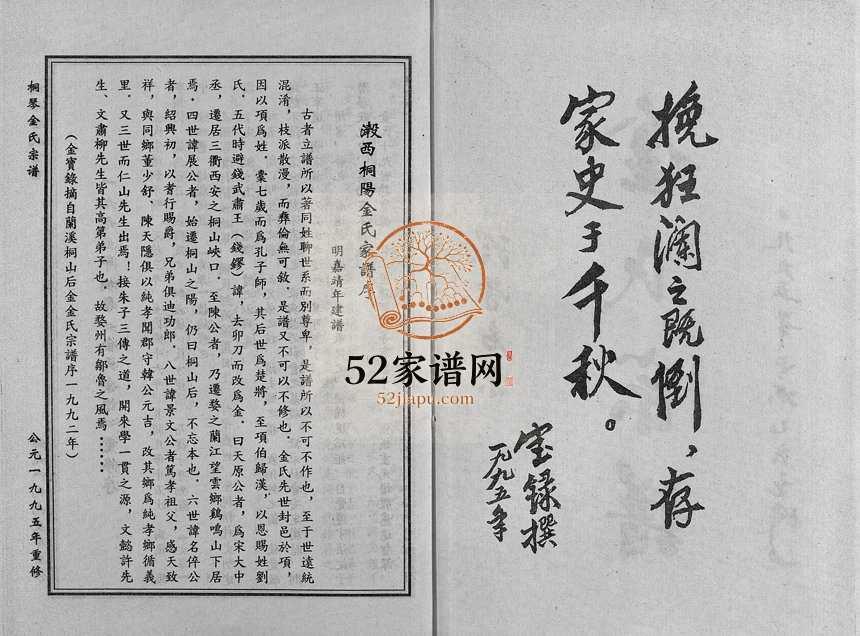 挽狂瀾之既倒、存
家史于千秋。
宝録撰
一九九五年
瀫西桐陽金氏家譜序
明嘉靖年建譜
古者立譜所以著同姓聯世系而別尊卑，是譜所以不可不作也，至于世遠統
混淆，枝派散漫，而彝倫無可敘．是譜又不可以不修也．金氏先世封邑於項，
因以項爲姓．橐七歲而爲孔子師，其后世爲楚將，至項伯歸漢，以恩賜姓劉
氏．五代時避錢武肅王（錢鏐）諱，去卯刀而改爲金．曰天原公者，爲宋大中
丞，遷居三衢西安之桐山峽口．至陳公者，乃遷婺之蘭江望雲鄉鷄鳴山下居
焉．四世諱展公者，始遷桐山之陽，仍曰桐山后，不忘本也．六世諱名倅公
者，紹興初，以耆行賜爵，兄弟俱迪功郎．八世諱景文公者篤孝祖父，感天致
祥，與同鄉董少舒、陳天隱俱以純孝聞郡守韓公元吉，改其鄉爲純孝鄉循義
里．又三世而仁山先生出焉！接朱子三傳之道，開來學一貫之源，文懿許先
生、文肅柳先生皆其高第弟子也．故婺州有鄒魯之風焉……
（金寶錄摘自蘭溪桐山后金金氏宗譜序一九九二年）
桐琴金氏宗谱
公元一九九五年重修
52家谱网
52jiapu.com